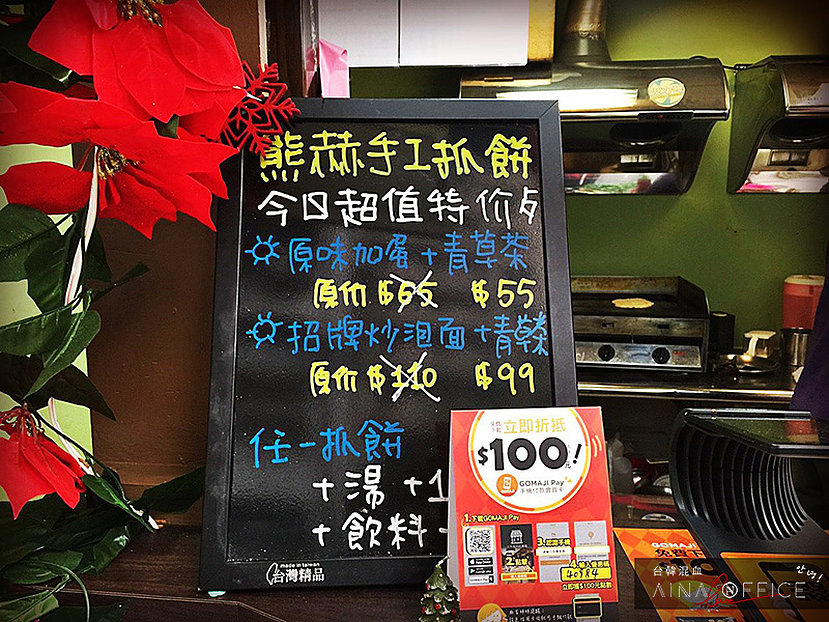 熊赫手工抓餅
今日超值特价
原味加蛋+青草茶
原价 $65 $55
招牌炒泡面+青草茶
原价 $110 $99
任一抓餅
+湯 +1
+飲料
made in taiwan
台灣精品
立即折抵
$100元!
GOMAJI Pay
手機付款會員卡
1.下載GOMAJI Pay
2.點擊
3.認證手機
4.輸入優惠碼
40984
立即獲$100元點數
GOMAJI
台韓混血
AINA OFFICE
안녕!